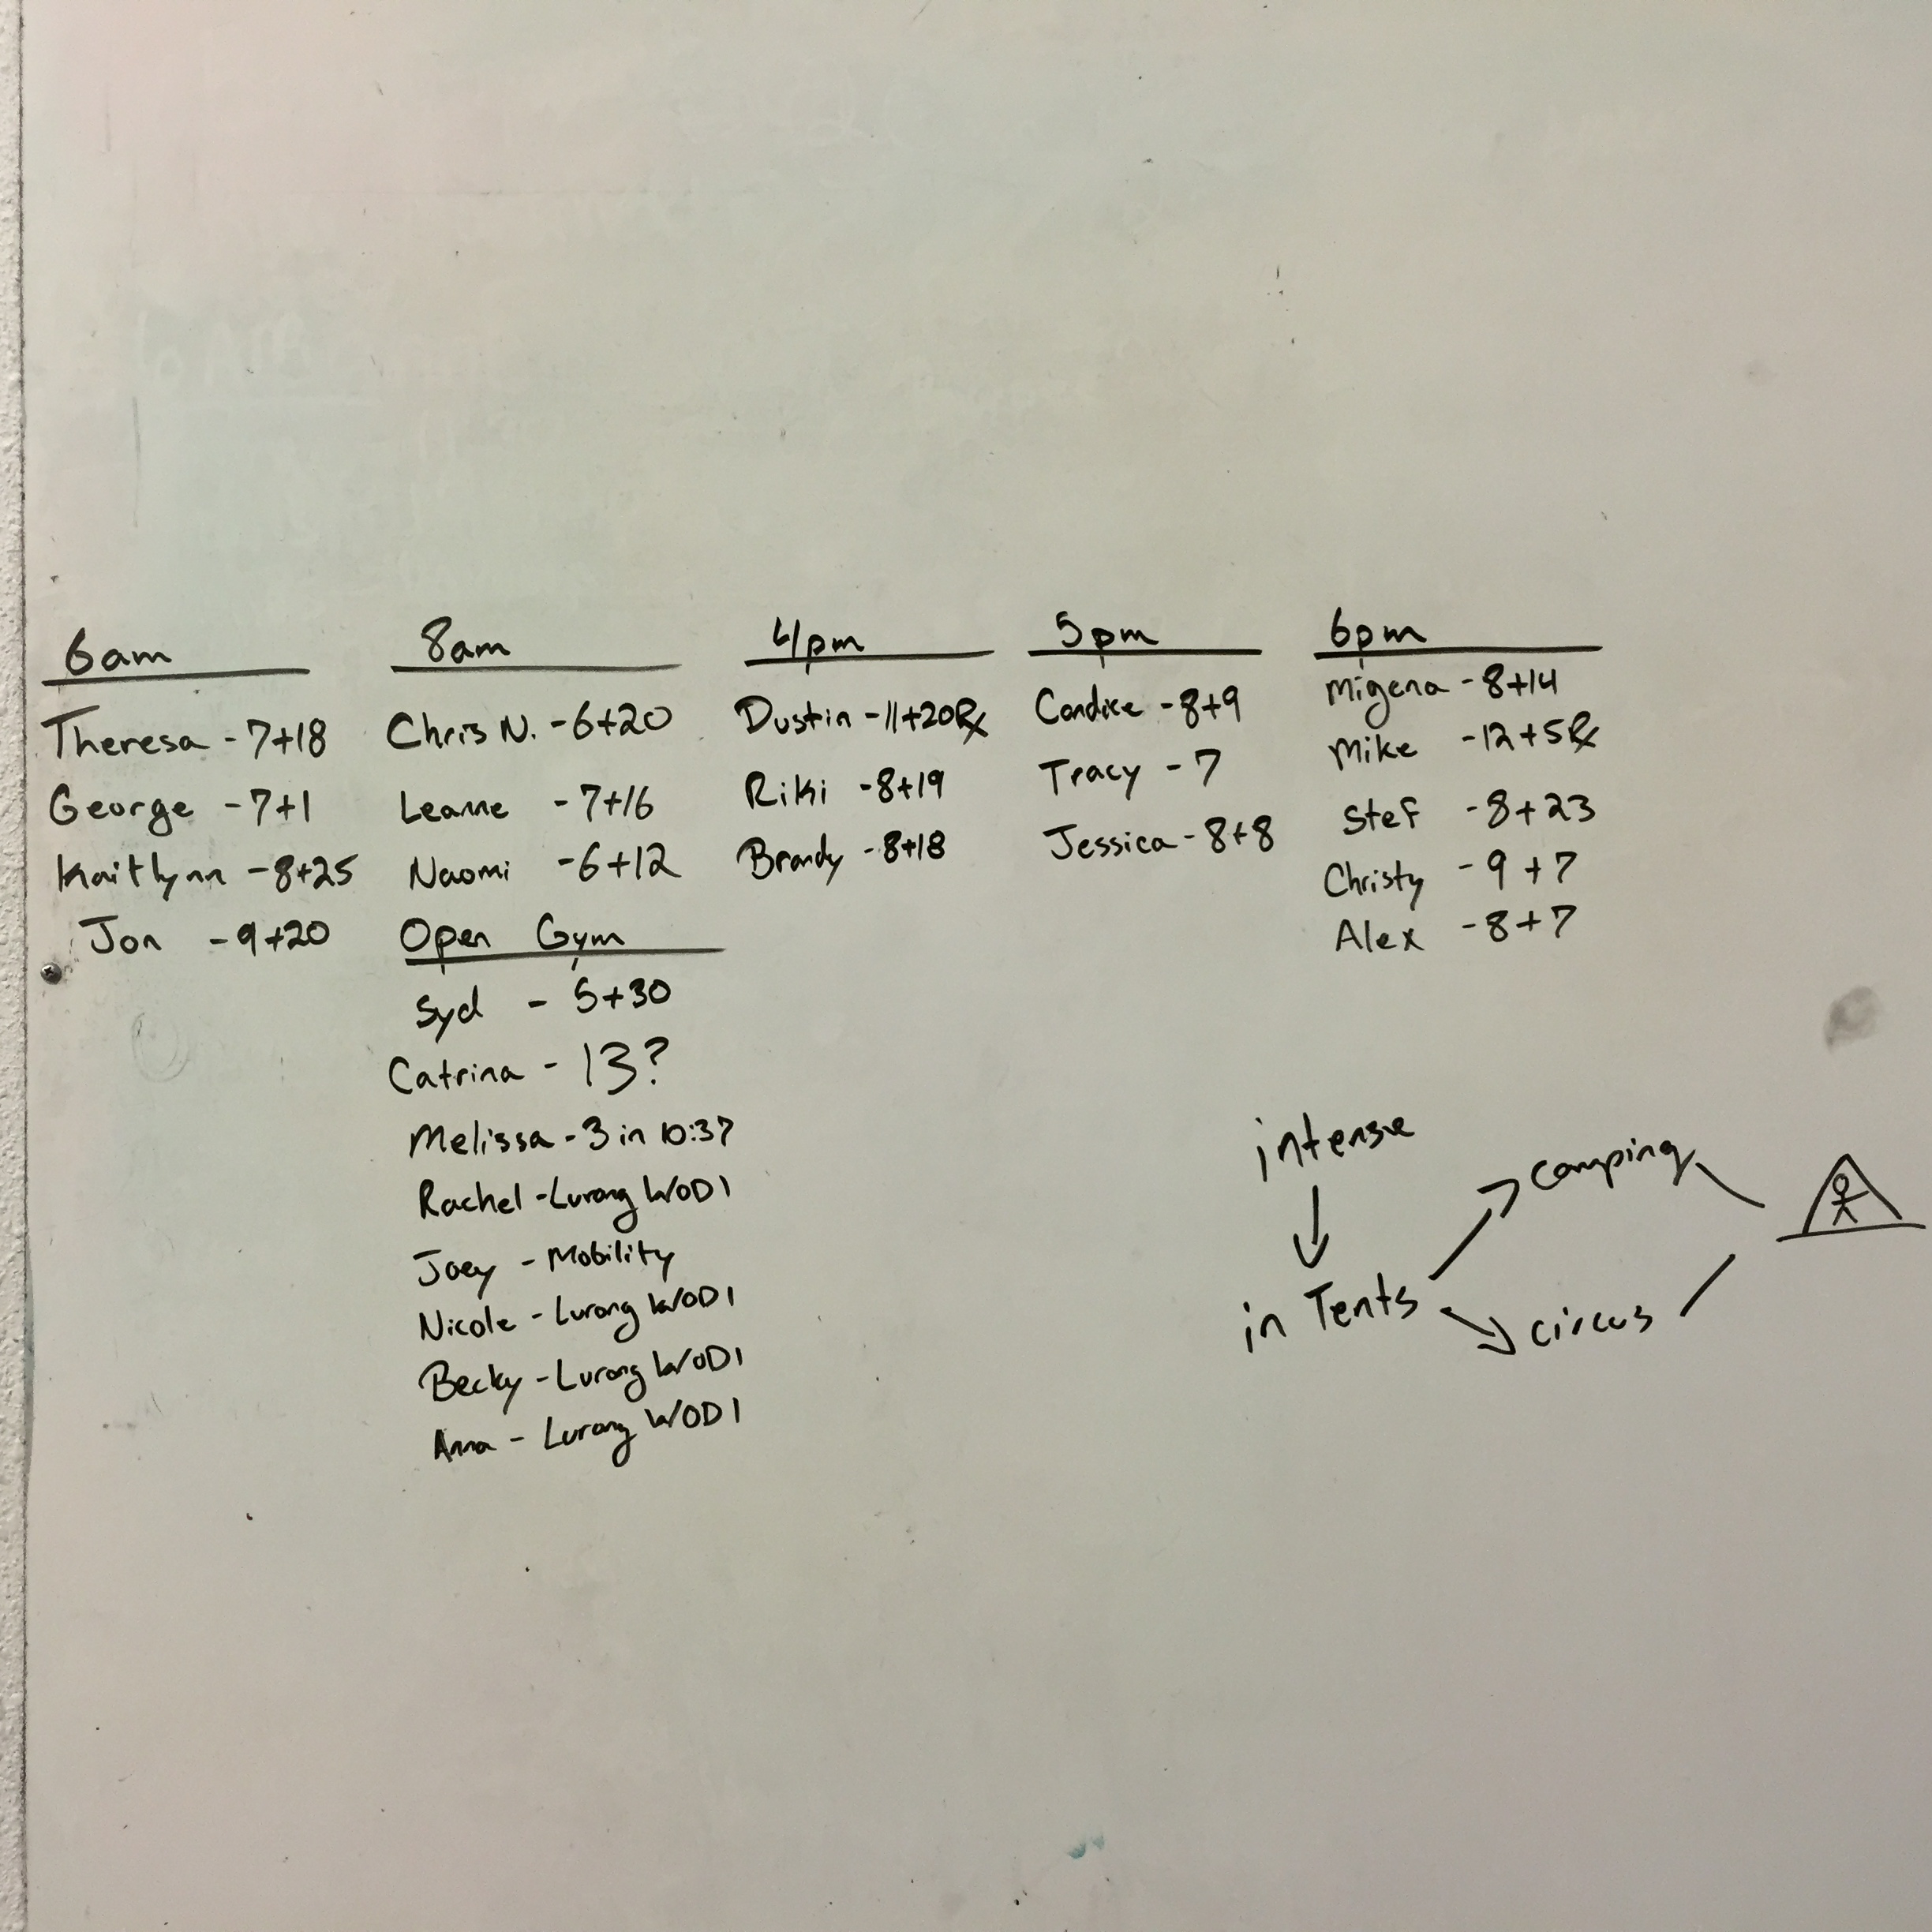 6am
Theresa - 7+18
George - 7+1
Kaitlynn - 8+25
Jon - 9+20
8am
Chris N. - 6+20
Leanne - 7+16
Naomi - 6+12
Open Gym
Syd - 5+30
Catrina - 13?
Melissa - 3 in 10:37
Rachel - Lurong WOD1
Joey - Mobility
Nicole - Lurong WOD1
Becky - Lurong WOD1
Anna - Lurong WOD1
4pm
Dustin - 11+20 Rx
Riki - 8+19
Brandy - 8+18
5pm
Candice - 8+9
Tracy - 7
Jessica - 8+8
6pm
Migena - 8+14
Mike - 12+5 Rx
Stef - 8+23
Christy - 9+7
Alex - 8+7
intense
in Tents
camping
circus